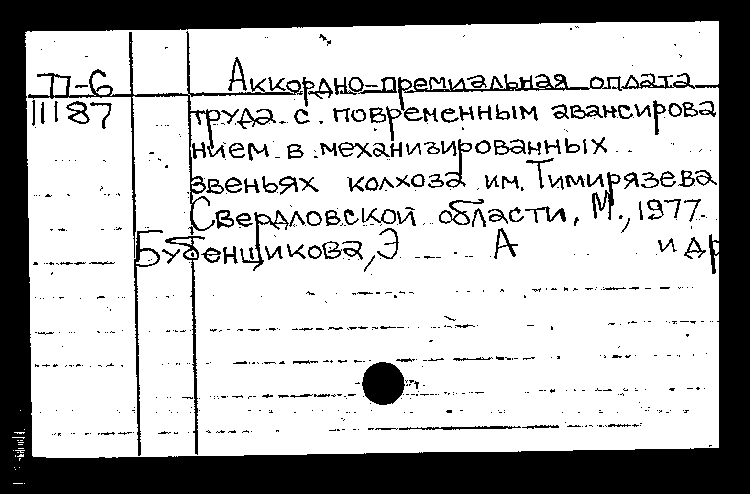 П-6 Аккордно-премиальная оплата
11187 труда с повременным авансирова
нием в механизированных
звеньях колхоза им. Тимирязева
Свердловской области, М., 1977.
Бубенщикова, Э А и др